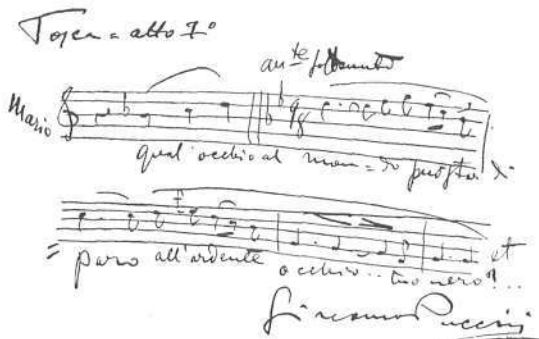 Tosca = atto Iº
an.te sostenuto
Mario
qual'occhio al mon = do può star di
= paro all'ardente occhio.. tuo nero?.. et
Giacomo Puccini